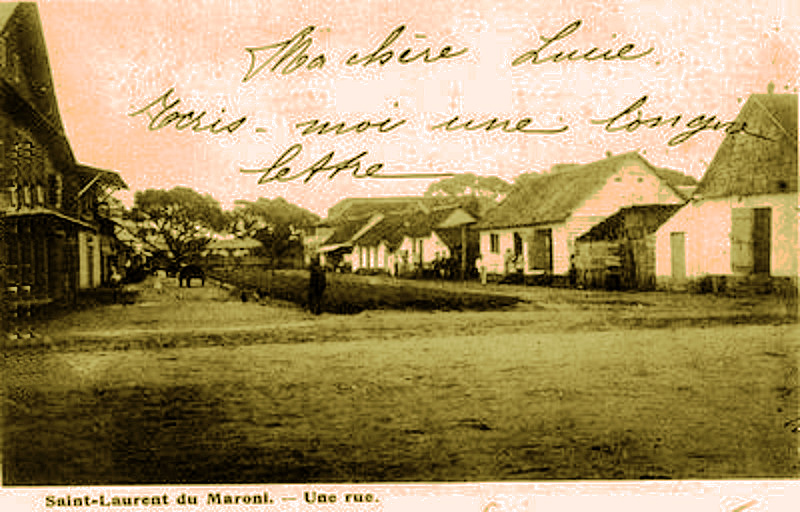 Ma chère Lucie.
Ecris-moi une longue
lettre
Saint-Laurent du Maroni. — Une rue.